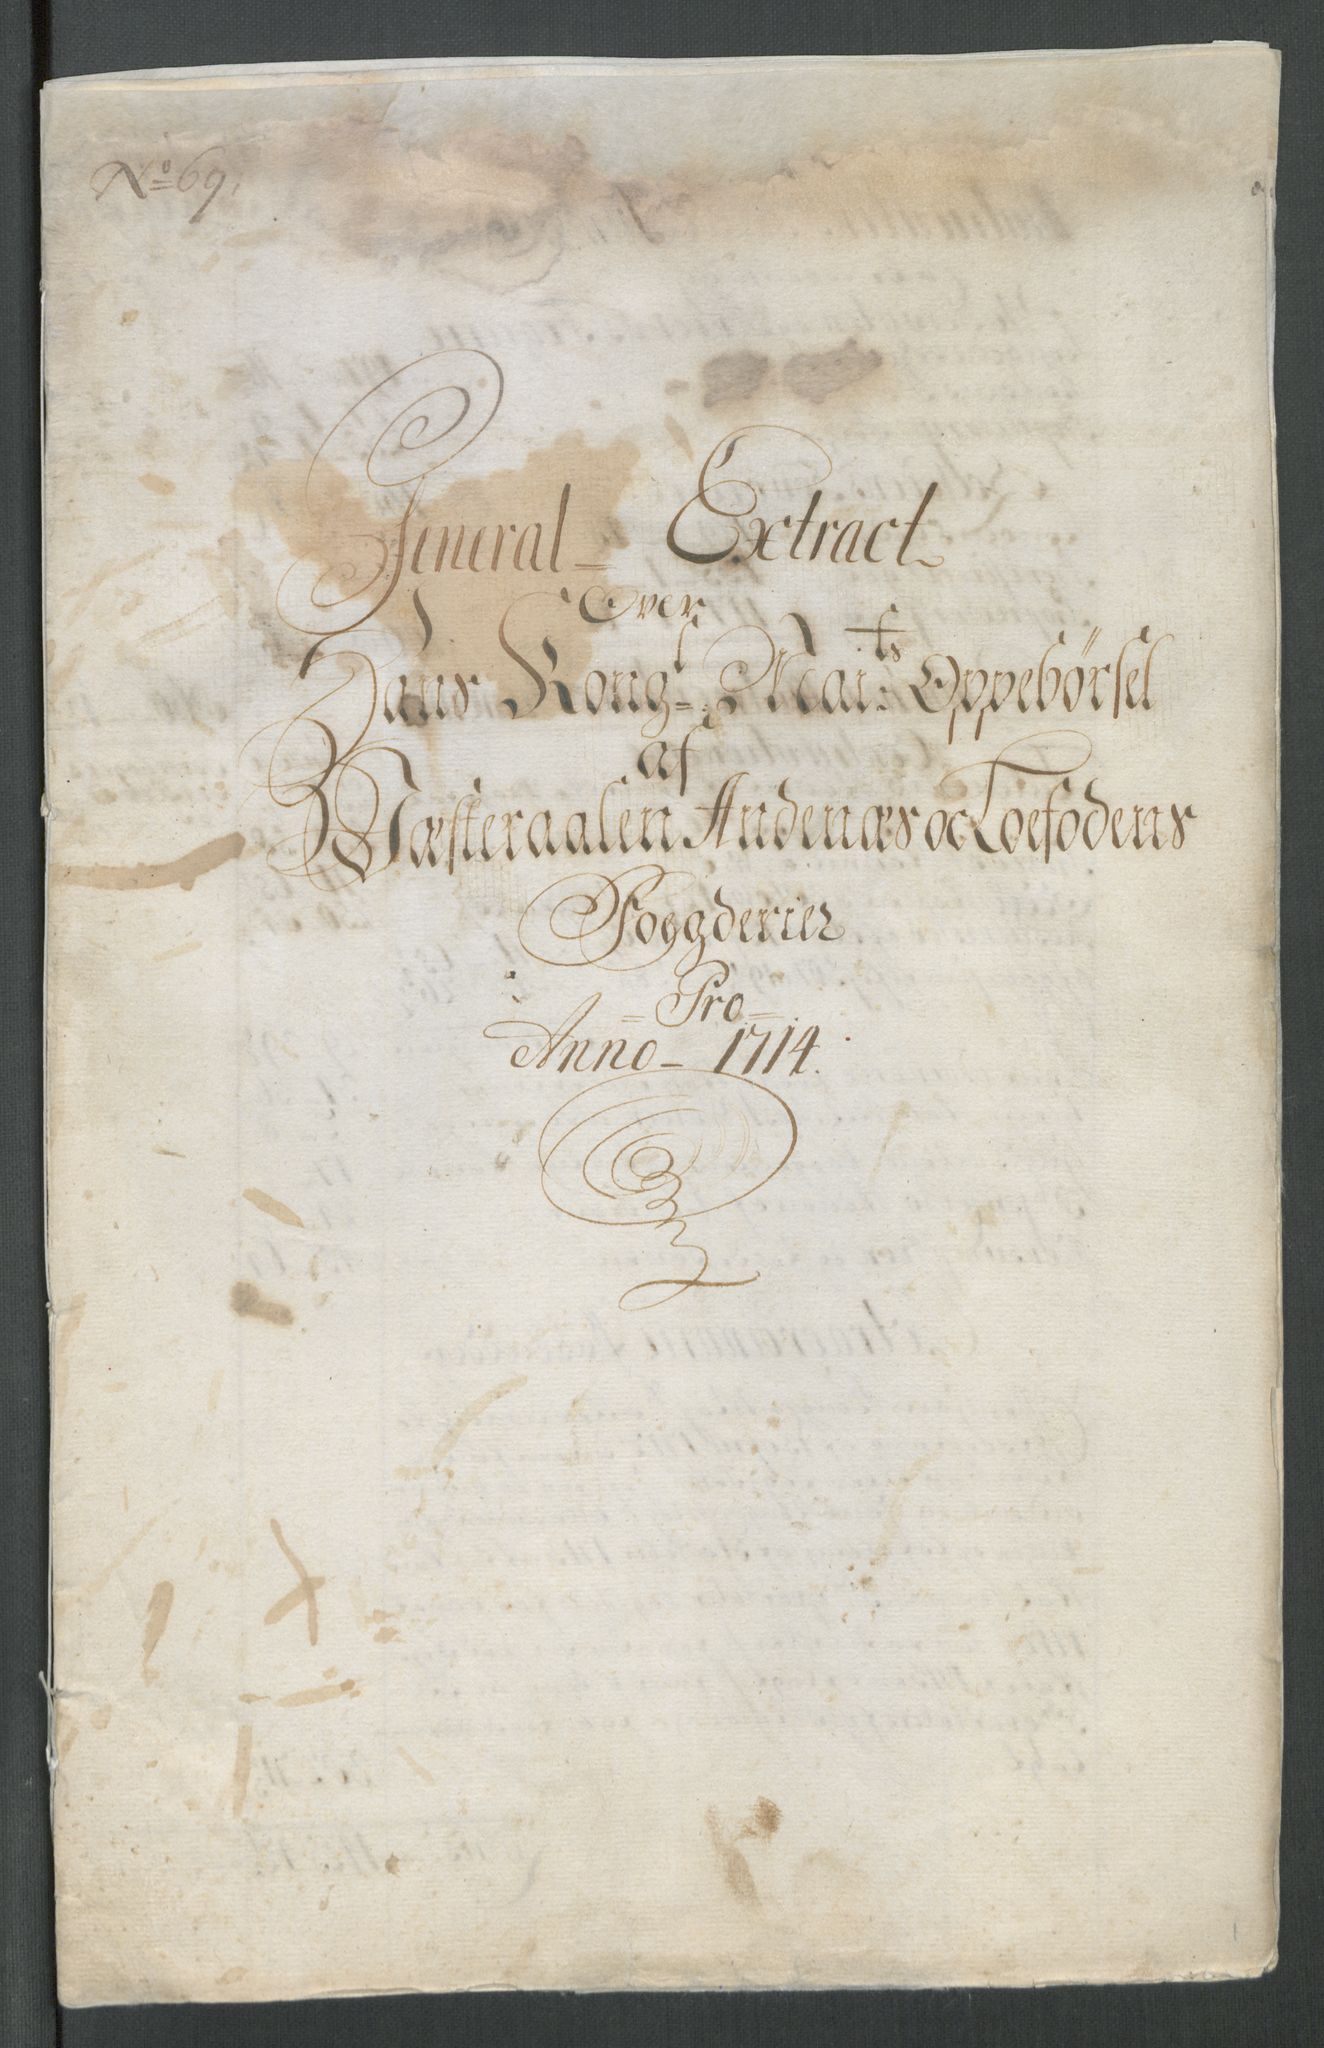 No 69.
General Extract
Over
Hans Kongl. Maits Oppebörsel
af
Wæsteraalen Andenæs oc Loefodens
Foggderier
Pro
Anno 1714.